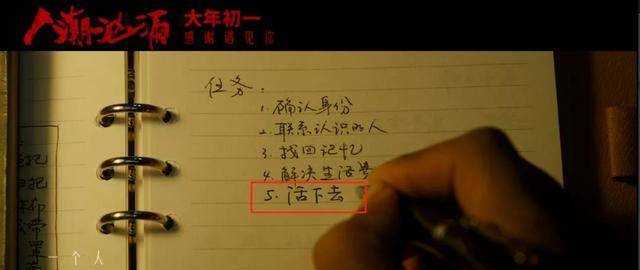 人潮汹涌
大年初一
感谢遇见你
任务：
1. 确认身份
2. 联系认识的人
3. 找回记忆
4. 解决生活费
5. 活下去
一个人